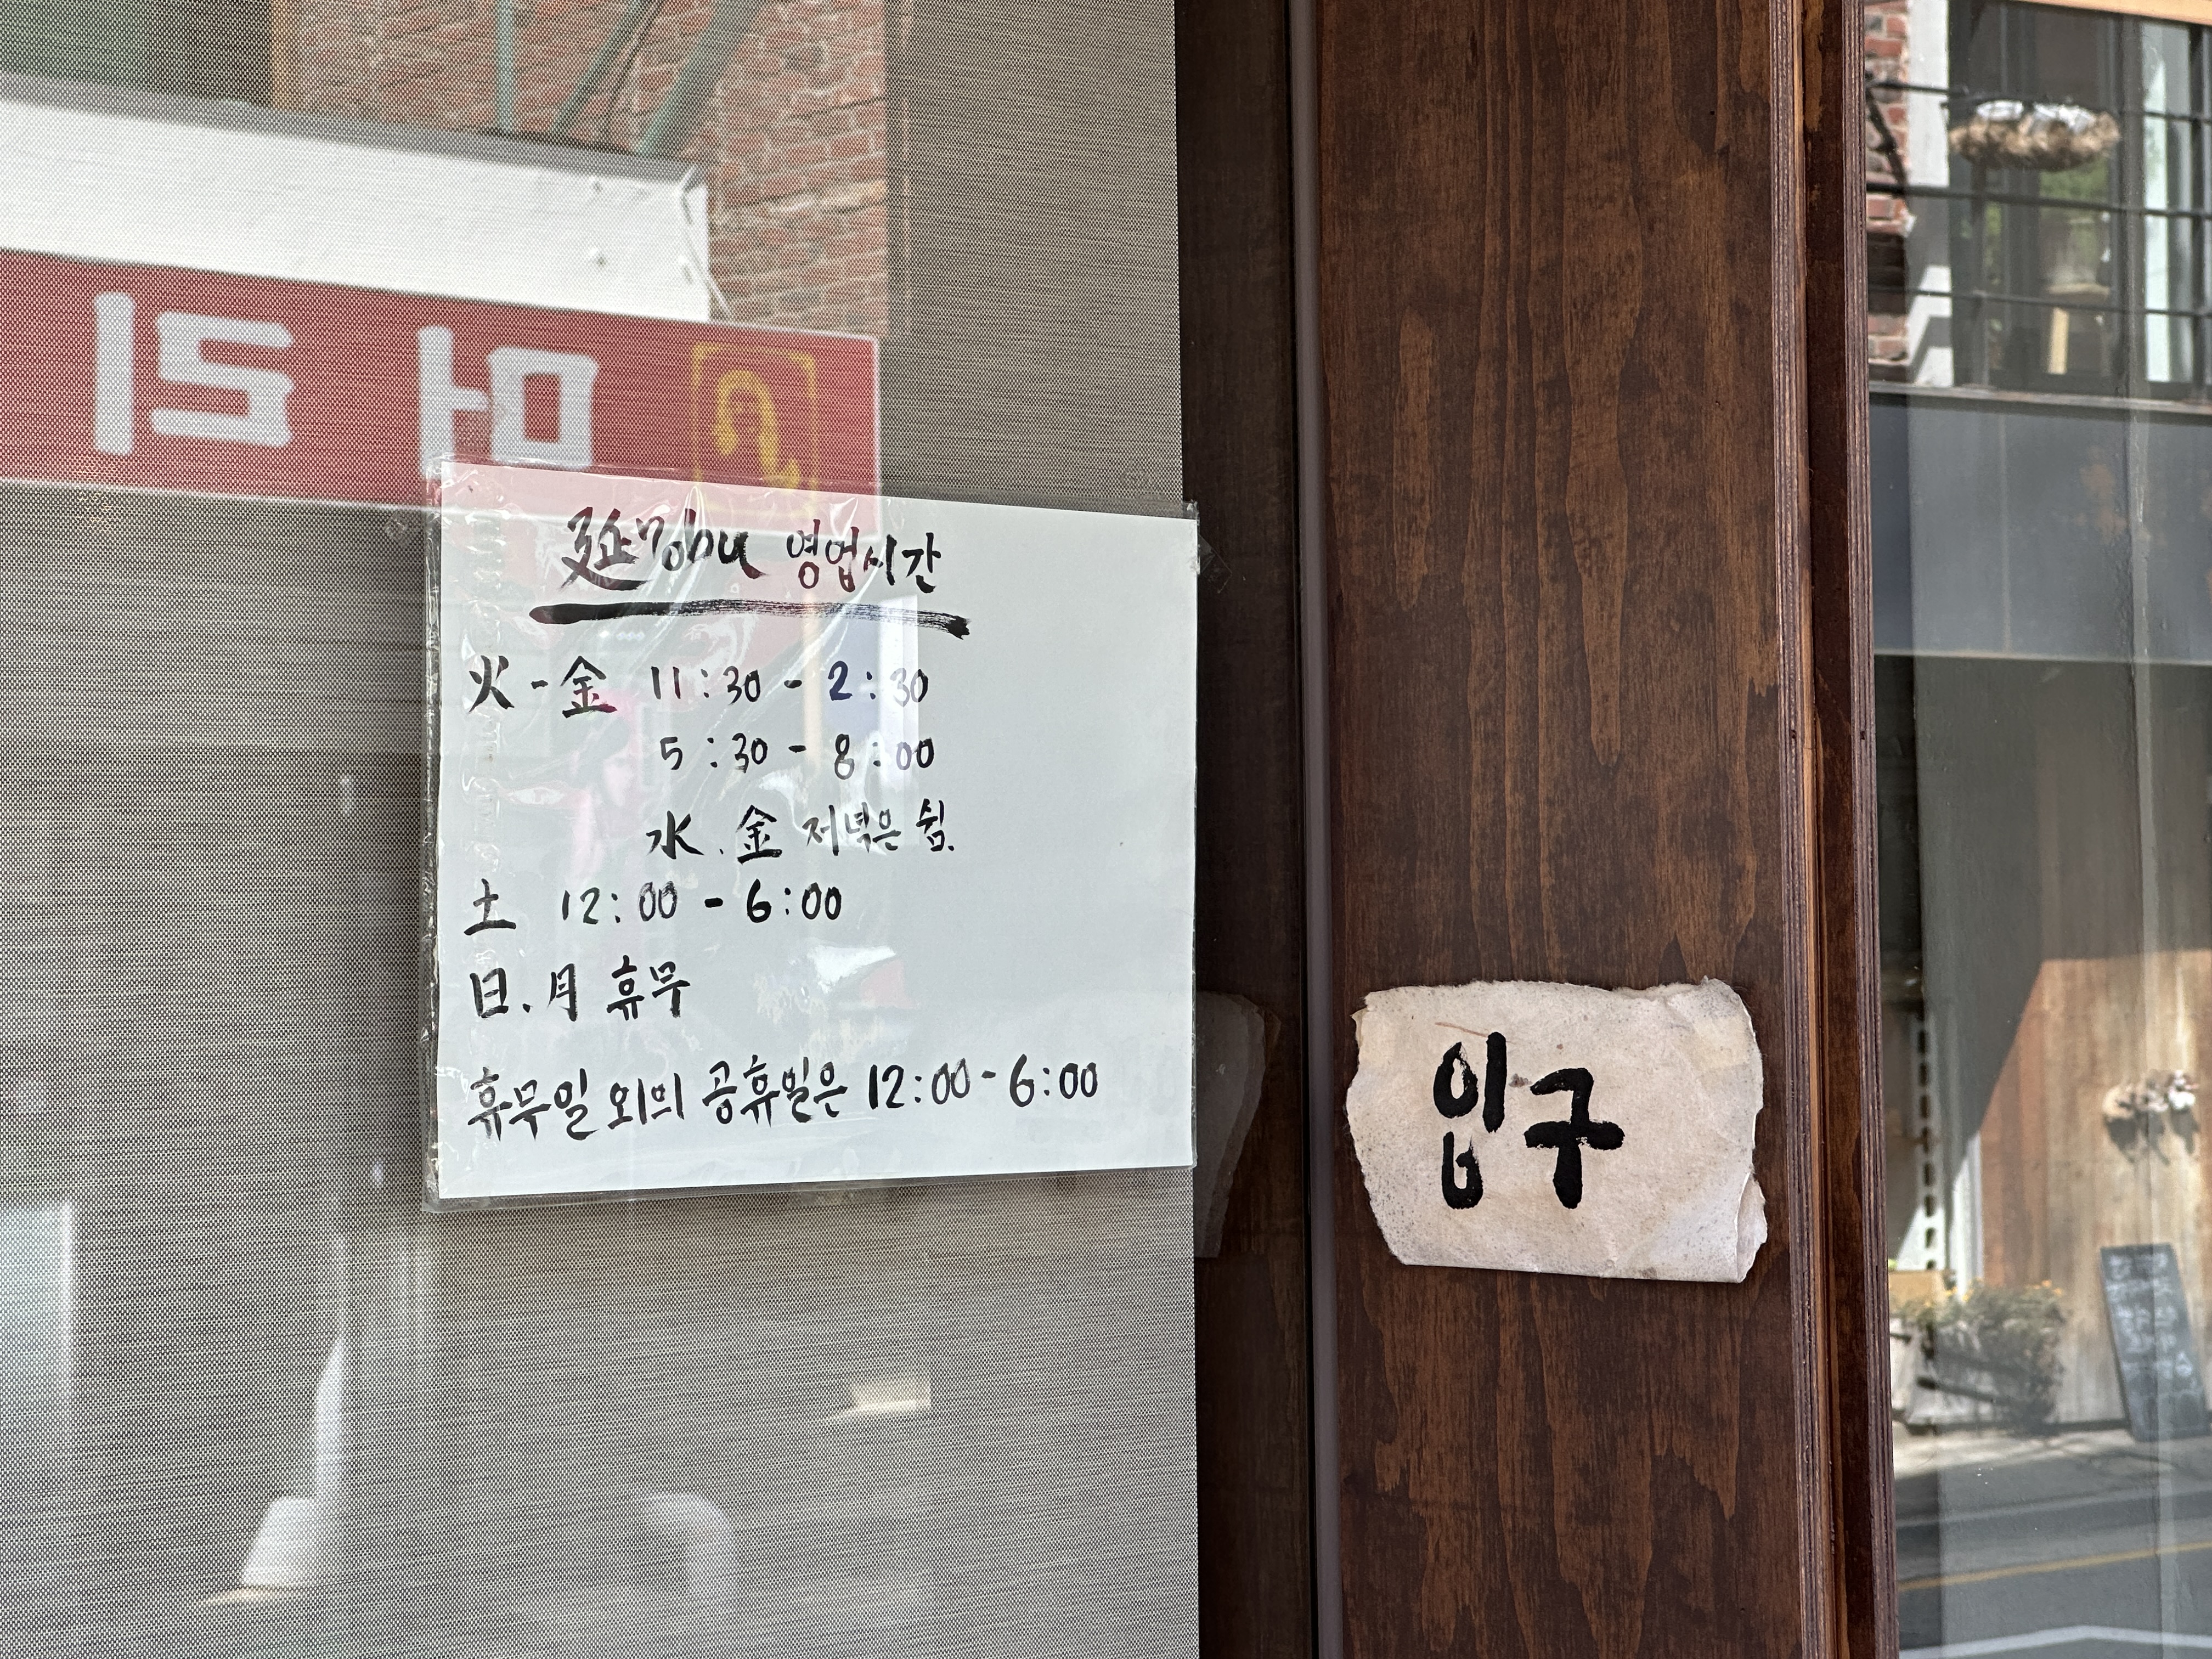 延nobu 영업시간
火-金 11:30 - 2:30
5:30 - 8:00
水.金 저녁은 쉼.
土 12:00 - 6:00
日.月 휴무
휴무일 외의 공휴일은 12:00-6:00
입구